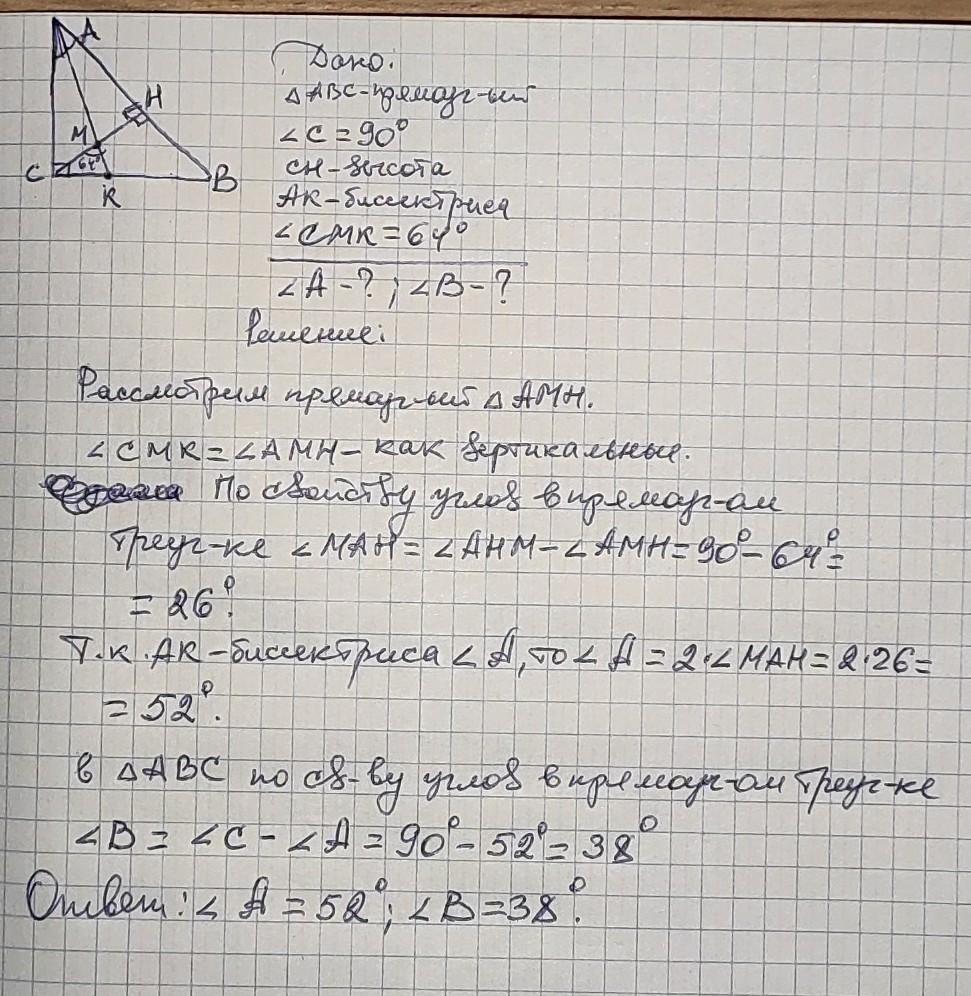 A
H
M
64°
C
K
B
Дано:
△ABC-прямоуг-ый
∠C = 90°
CH-высота
AK-биссектриса
∠CMK = 64°
∠A - ? ; ∠B - ?
Решение:
Рассмотрим прямоуг-ый △AMH.
∠CMK = ∠AMH - как вертикальные.
По свойству углов в прямоуг-ом
треуг-ке ∠MAH = ∠AHM - ∠AMH = 90° - 64° =
= 26°.
Т.к. AK-биссектриса ∠A, то ∠A = 2·∠MAH = 2·26 =
= 52°.
В △ABC по св-ву углов в прямоуг-ом треуг-ке
∠B = ∠C - ∠A = 90° - 52° = 38°
Ответ: ∠A = 52°; ∠B = 38°.